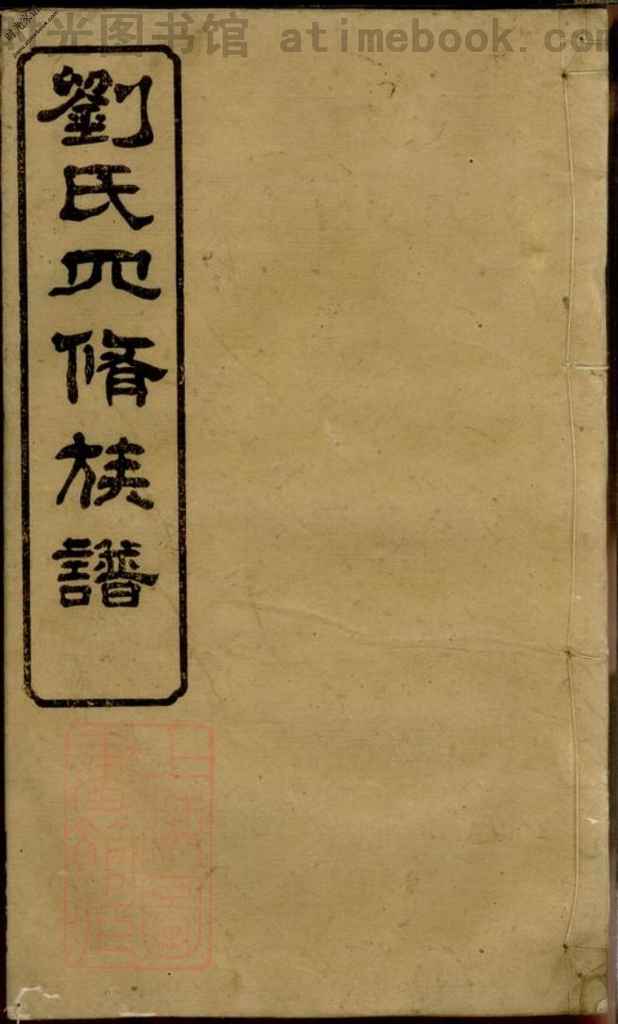 时光图书馆 atimebook.com
劉氏四修族譜